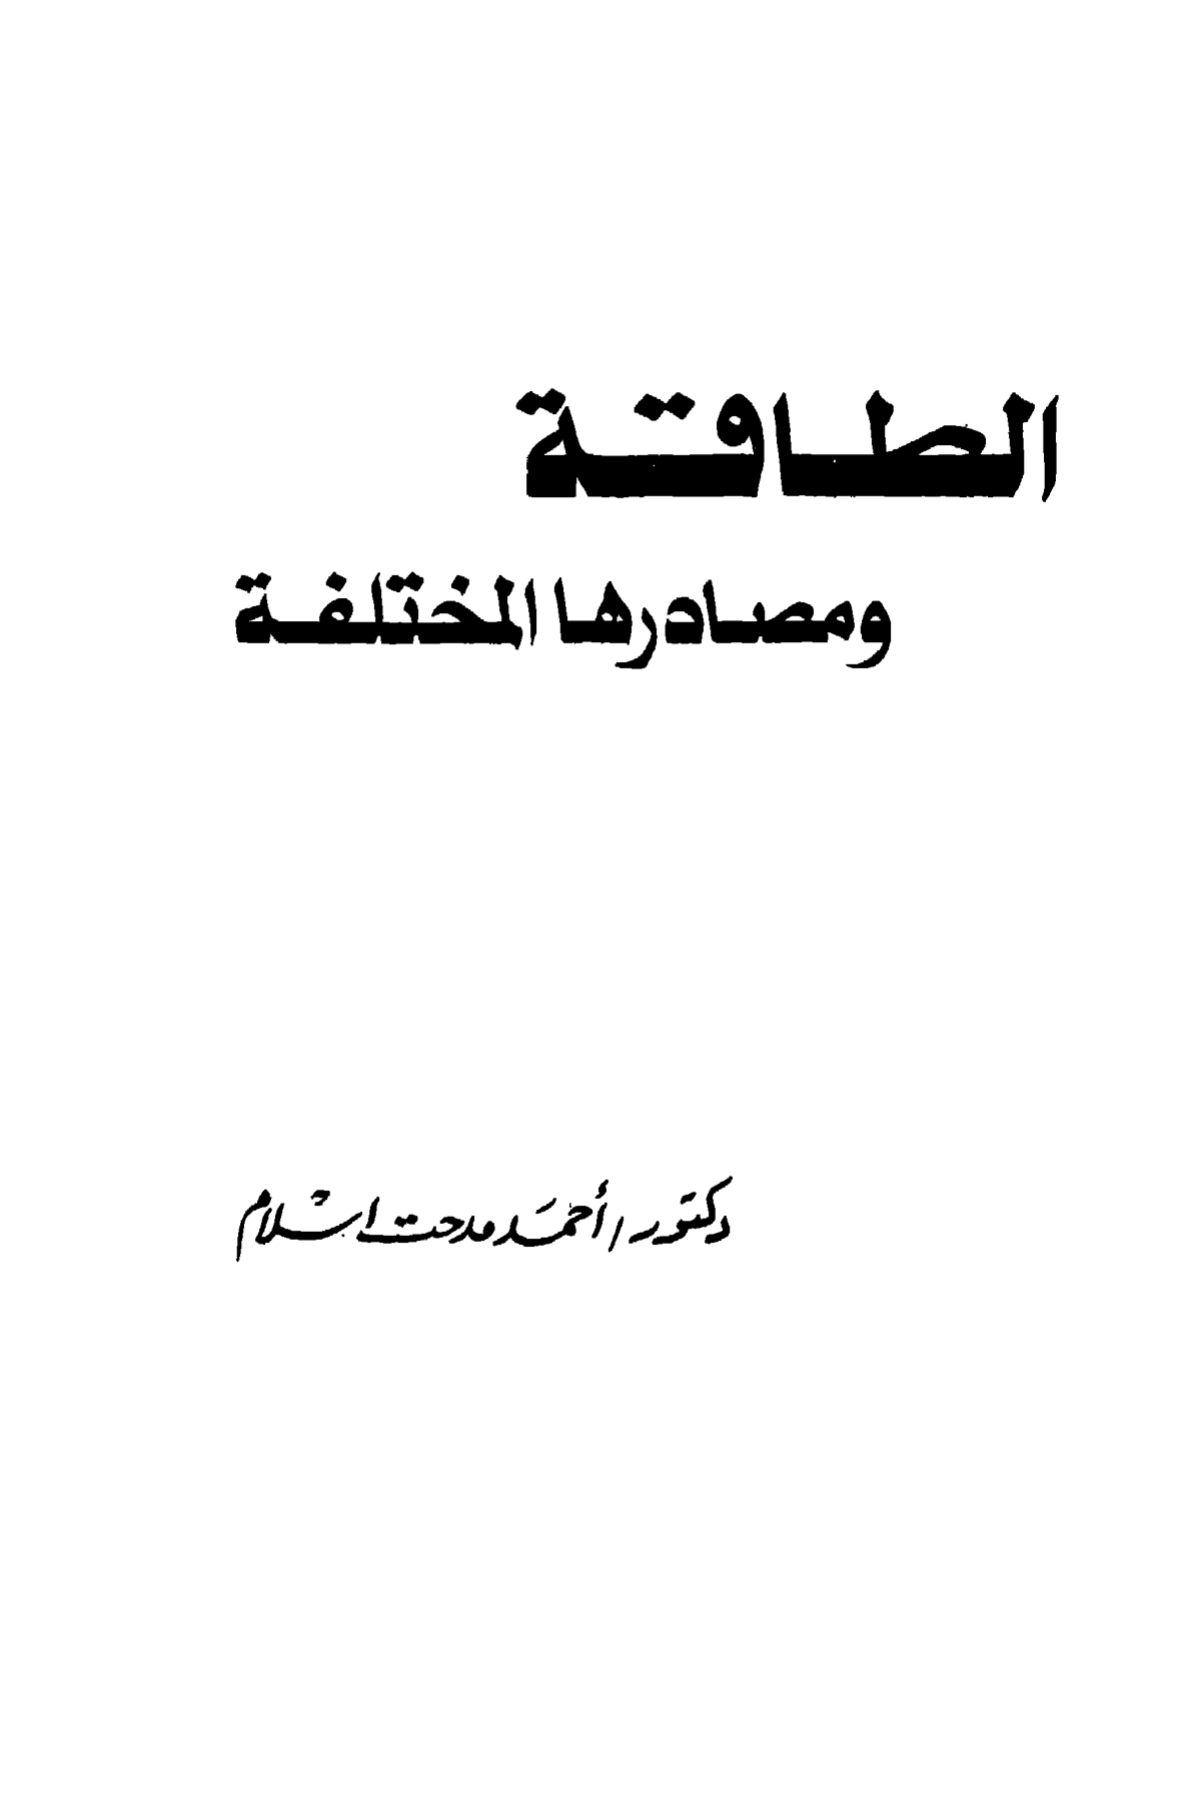 الطاقة
ومصادرها المختلفة
دكتور / أحمد مدحت إسلام